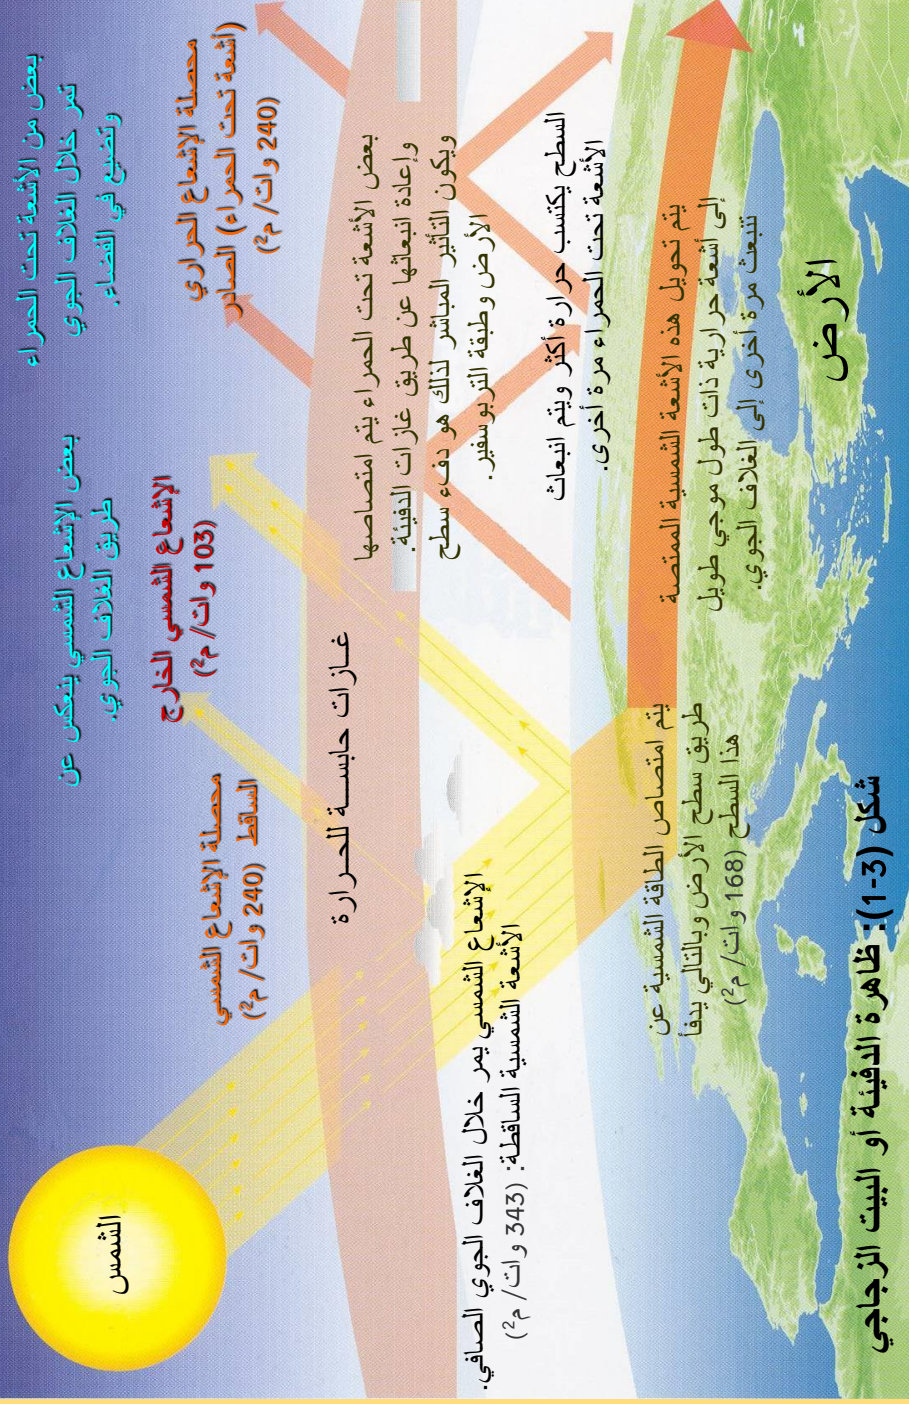 بعض من الأشعة تحت الحمراء
تمر خلال الغلاف الجوي
وتضيع في الفضاء.
محصلة الإشعاع الحراري
(أشعة تحت الحمراء) الصادر
(240 وات/ م2)
بعض الإشعاع الشمسي ينعكس عن
طريق الغلاف الجوي.
الإشعاع الشمسي الخارج
(103 وات/ م2)
محصلة الإشعاع الشمسي
الساقط (240 وات/ م2)
الشمس
غازات حابسة للحرارة
بعض الأشعة تحت الحمراء يتم امتصاصها
وإعادة انبعاثها عن طريق غازات الدفيئة.
ويكون التأثير المباشر لذلك هو دفء سطح
الأرض وطبقة التربوسفير.
السطح يكتسب حرارة أكثر ويتم انبعاث
الأشعة تحت الحمراء مرة أخرى.
الإشعاع الشمسي يمر خلال الغلاف الجوي الصافي.
الأشعة الشمسية الساقطة: (343 وات/ م2)
يتم امتصاص الطاقة الشمسية عن
طريق سطح الأرض وبالتالي يدفأ
هذا السطح (168 وات/ م2)
يتم تحويل هذه الأشعة الشمسية الممتصة
إلى أشعة حرارية ذات طول موجي طويل
تنبعث مرة أخرى إلى الغلاف الجوي.
الأرض
شكل (3-1): ظاهرة الدفيئة أو البيت الزجاجي